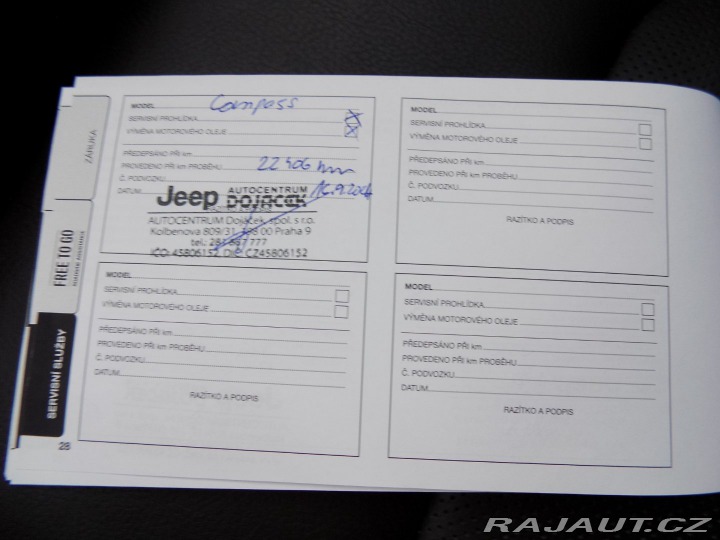 ZÁRUKA
FREE TO GO
SERVISNÍ SLUŽBY
28
MODEL Compass
SERVISNÍ PROHLÍDKA
VÝMĚNA MOTOROVÉHO OLEJE
PŘEDEPSÁNO PŘI km
PROVEDENO PŘI km PROBĚHU 22406 km
Č. PODVOZKU
DATUM
Jeep AUTOCENTRUM
DOJÁČEK
AUTOCENTRUM Dojáček, spol. s r.o.
Kolbenova 809/31, 198 00 Praha 9
tel.: 281 867 777
IČO: 45806152, DIČ: CZ45806152
MODEL
SERVISNÍ PROHLÍDKA
VÝMĚNA MOTOROVÉHO OLEJE
PŘEDEPSÁNO PŘI km
PROVEDENO PŘI km PROBĚHU
Č. PODVOZKU
DATUM
RAZÍTKO A PODPIS
MODEL
SERVISNÍ PROHLÍDKA
VÝMĚNA MOTOROVÉHO OLEJE
PŘEDEPSÁNO PŘI km
PROVEDENO PŘI km PROBĚHU
Č. PODVOZKU
DATUM
RAZÍTKO A PODPIS
MODEL
SERVISNÍ PROHLÍDKA
VÝMĚNA MOTOROVÉHO OLEJE
PŘEDEPSÁNO PŘI km
PROVEDENO PŘI km PROBĚHU
Č. PODVOZKU
DATUM
RAZÍTKO A PODPIS
RAJAUT.CZ